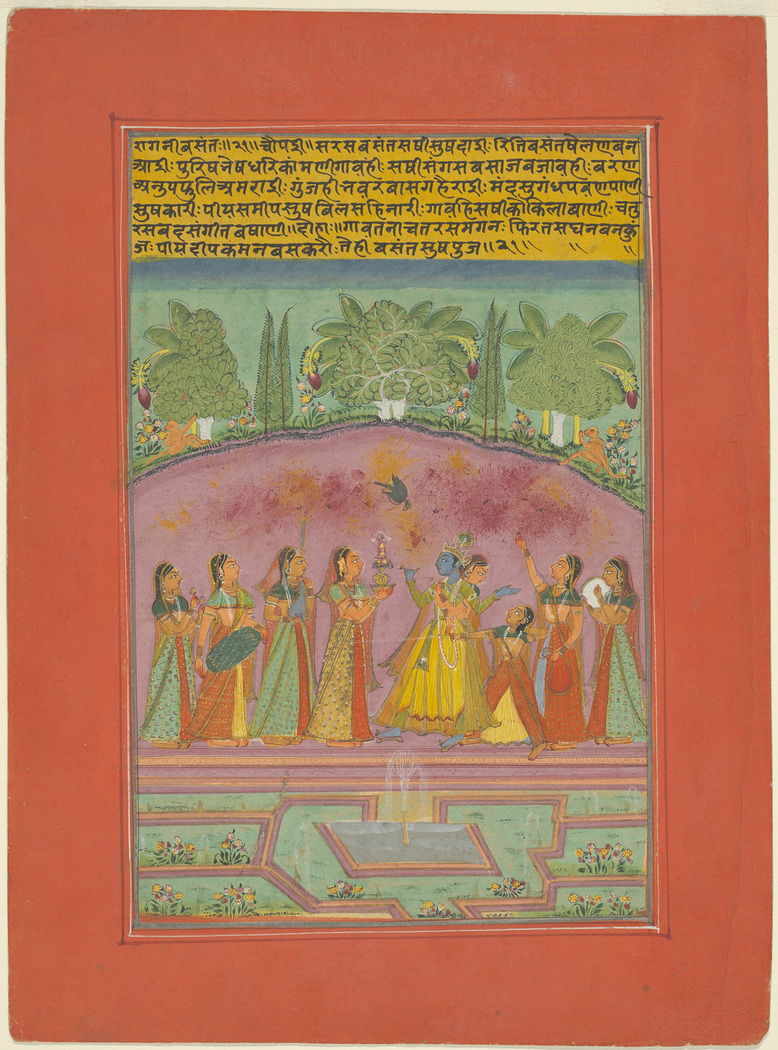 रागनी बसंतः॥२१॥ चौपई॥ सरस बसंत सषी सुषदाई: रिति बसंत षेलण बन
आई: पुरिष भेष धरि कांमणी गावही: सषी संग सब साज बजावही: बरण
अनुप फुलि अमराई: गुंजही भवर बास गहेराई: मंद सुगंध पवण पाणी
सुषकारी: पीय समीप सुष बिलसहि नारी: गावहि सषी कोकिला बाणी: चतु
रस बद संगीत बषाणी॥ दोहा:॥ गावत नाचत रस मगन: फिरत सघन बन कुं
ज: पीय दीपक मन बस करी: बसंत सुष पुज॥२१॥ ॥ ॥